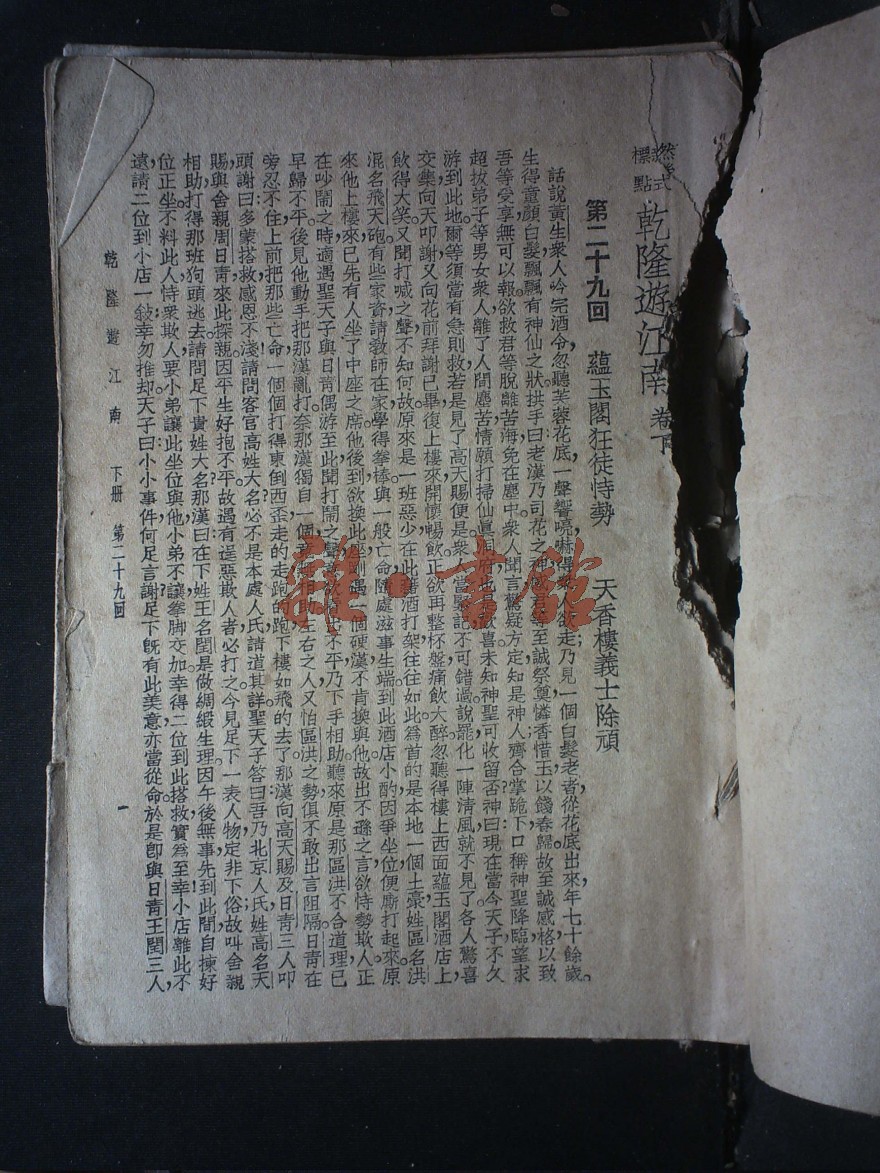 新式標點 乾隆遊江南 卷下
第二十九回 蘊玉閣狂徒恃勢 天香樓義士除頑
話說黃生衆人吟完酒令,忽聽芙蓉花底一聲響喨,嚇得衆人欲走;乃見一個白髮老者,從花底出來,年七十餘歲。
生得童顏白髮,飄飄有神仙之狀,拱手曰:老漢乃司花之神,等至誠祭奠,憐香惜玉,以餞春歸,故至誠感格,以致
吾等受享,無可以報,欲救君等脫離苦海,免在塵中。衆人聞言驚疑,方定知是神人,齊合掌跪下,口稱神聖降臨,望求
超拔弟子等男女衆人,離了人間塵苦,情願打掃仙眞洞府,也歡喜,未知神聖可收留否?神曰:現在當今天子,不久
游到此地,爾等須當有急則救,若是見了高天賜便是,衆人當緊記,不可錯過。說罷,化一陣清風,就不見了。各人驚喜
交集,向天叩謝,又向花前拜謝已畢,復上樓來,開懷暢飲,正欲再整杯盤,痛飲大醉,忽聽得樓上西面蘊玉閣酒店上,
飲得大笑,又聞打喊之聲,不知何故。原來是一班惡少,在此賭酒打架,往往如此,爲首的是本地一個土豪,姓區名洪,
混名飛天砲,有些家資,請教師在家學得拳棒,與一般亡命,陸處滋事生端,到此酒店小酌,因爭坐位,便厮打起來。原
來他上樓來,已先有人坐了中座之席,他後到欲換此座,剛遇一個硬漢不肯換與他,故出不遜之言,欲恃勢欺人,正
在吵鬧之時,適遇聖天子與日青偶游至此,聞打鬧之聲,不平,乃下手相助,聽來原是那區洪不合道理,已
早歸不平,後見他動手,把那漢亂打,奈那漢獨自一個,助,左右之人又怕區洪之勢,俱不敢出言阻隔,日青在
旁忍不住,上前把那些亡命一個個打得東倒西歪,走的走,跑的跑,下樓如飛的去了,那漢向高天賜及日青三人叩
頭謝曰:多蒙搭救,感恩不淺!請問客官高姓大名?必不是本處人氏,請道其詳。聖天子答曰:吾乃北京人氏,姓高名天
賜,與舍親周日青來此探親,因平生好抱不平,故遇有逞惡欺人者必打之,今見足下一表人物,定非下俗,故叫舍親
相助,打得那班狗頭逃去,請問足下貴姓大名?那漢曰:在下姓王名閏,是做綢緞生理,因午後無事,先到此間,自揀好
位正坐,不料此人恃衆欺人,要小弟讓此坐位與他,小弟不讓,拳脚交加,幸得二位到此搭救,實爲至幸!小店離此不
遠,請二位到小店一敍,幸勿推却。天子曰:小小事件,何足言謝,足下旣有此美意,亦當從命,於是卽與日青王閏三人,
乾隆遊江南 下册 第二十九回 一
雜·書館